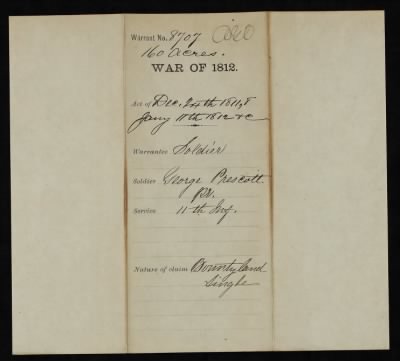 Warrant No. 8707
160 Acres.
WAR OF 1812.
Act of Dec. 24th 1811, &
Jany 11th 1812 &c
Warrantee Soldier
Soldier George Prescott
Pv.
Service 11-th Inf.
Nature of claim Bounty land
Single